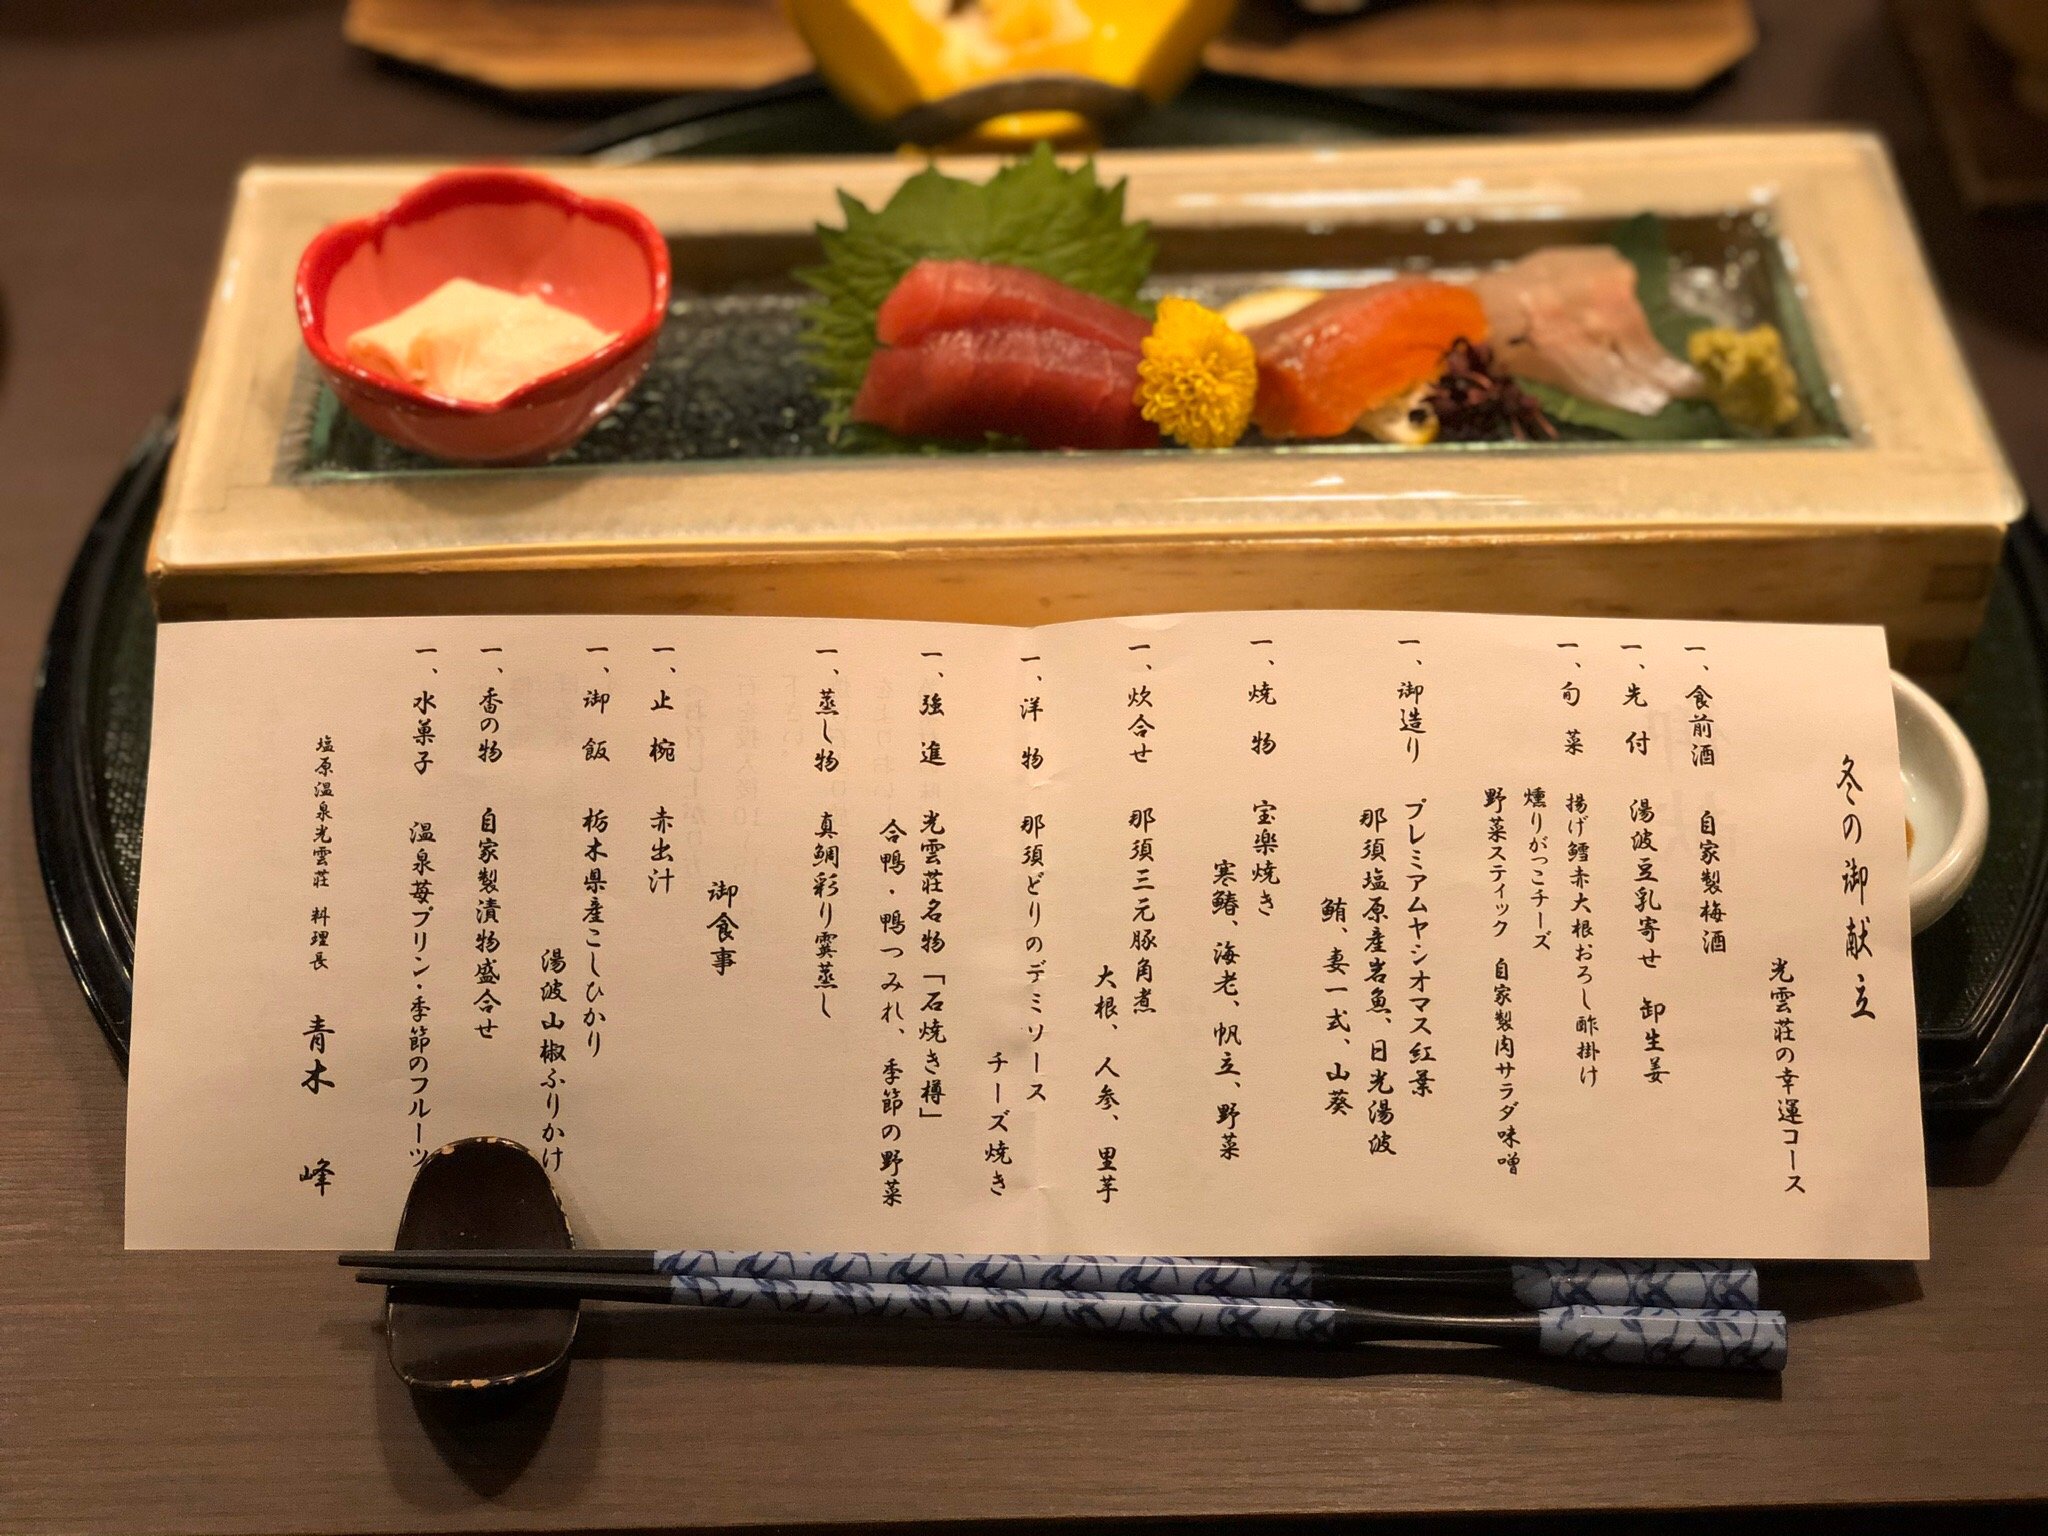 冬の御献立
光雲荘の幸運コース
一、食前酒 自家製梅酒
一、先付 湯波豆乳寄せ 卸生姜
一、旬菜 揚げ鱈赤大根おろし酢掛け
燻りがっこチーズ
野菜スティック 自家製肉サラダ味噌
一、御造り プレミアムヤシオマス紅葉
那須塩原産岩魚、日光湯波
鮪、妻一式、山葵
一、焼物 宝楽焼き
寒鰆、海老、帆立、野菜
一、炊合せ 那須三元豚角煮
大根、人参、里芋
一、洋物 那須どりのデミソース
チーズ焼き
一、強進 光雲荘名物「石焼き樽」
合鴨・鴨つみれ、季節の野菜
一、蒸し物 真鯛彩り霙蒸し
御食事
一、止椀 赤出汁
一、御飯 栃木県産こしひかり
湯波山椒ふりかけ
一、香の物 自家製漬物盛合せ
一、水菓子 温泉苺プリン・季節のフルーツ
塩原温泉光雲荘 料理長 青木 峰